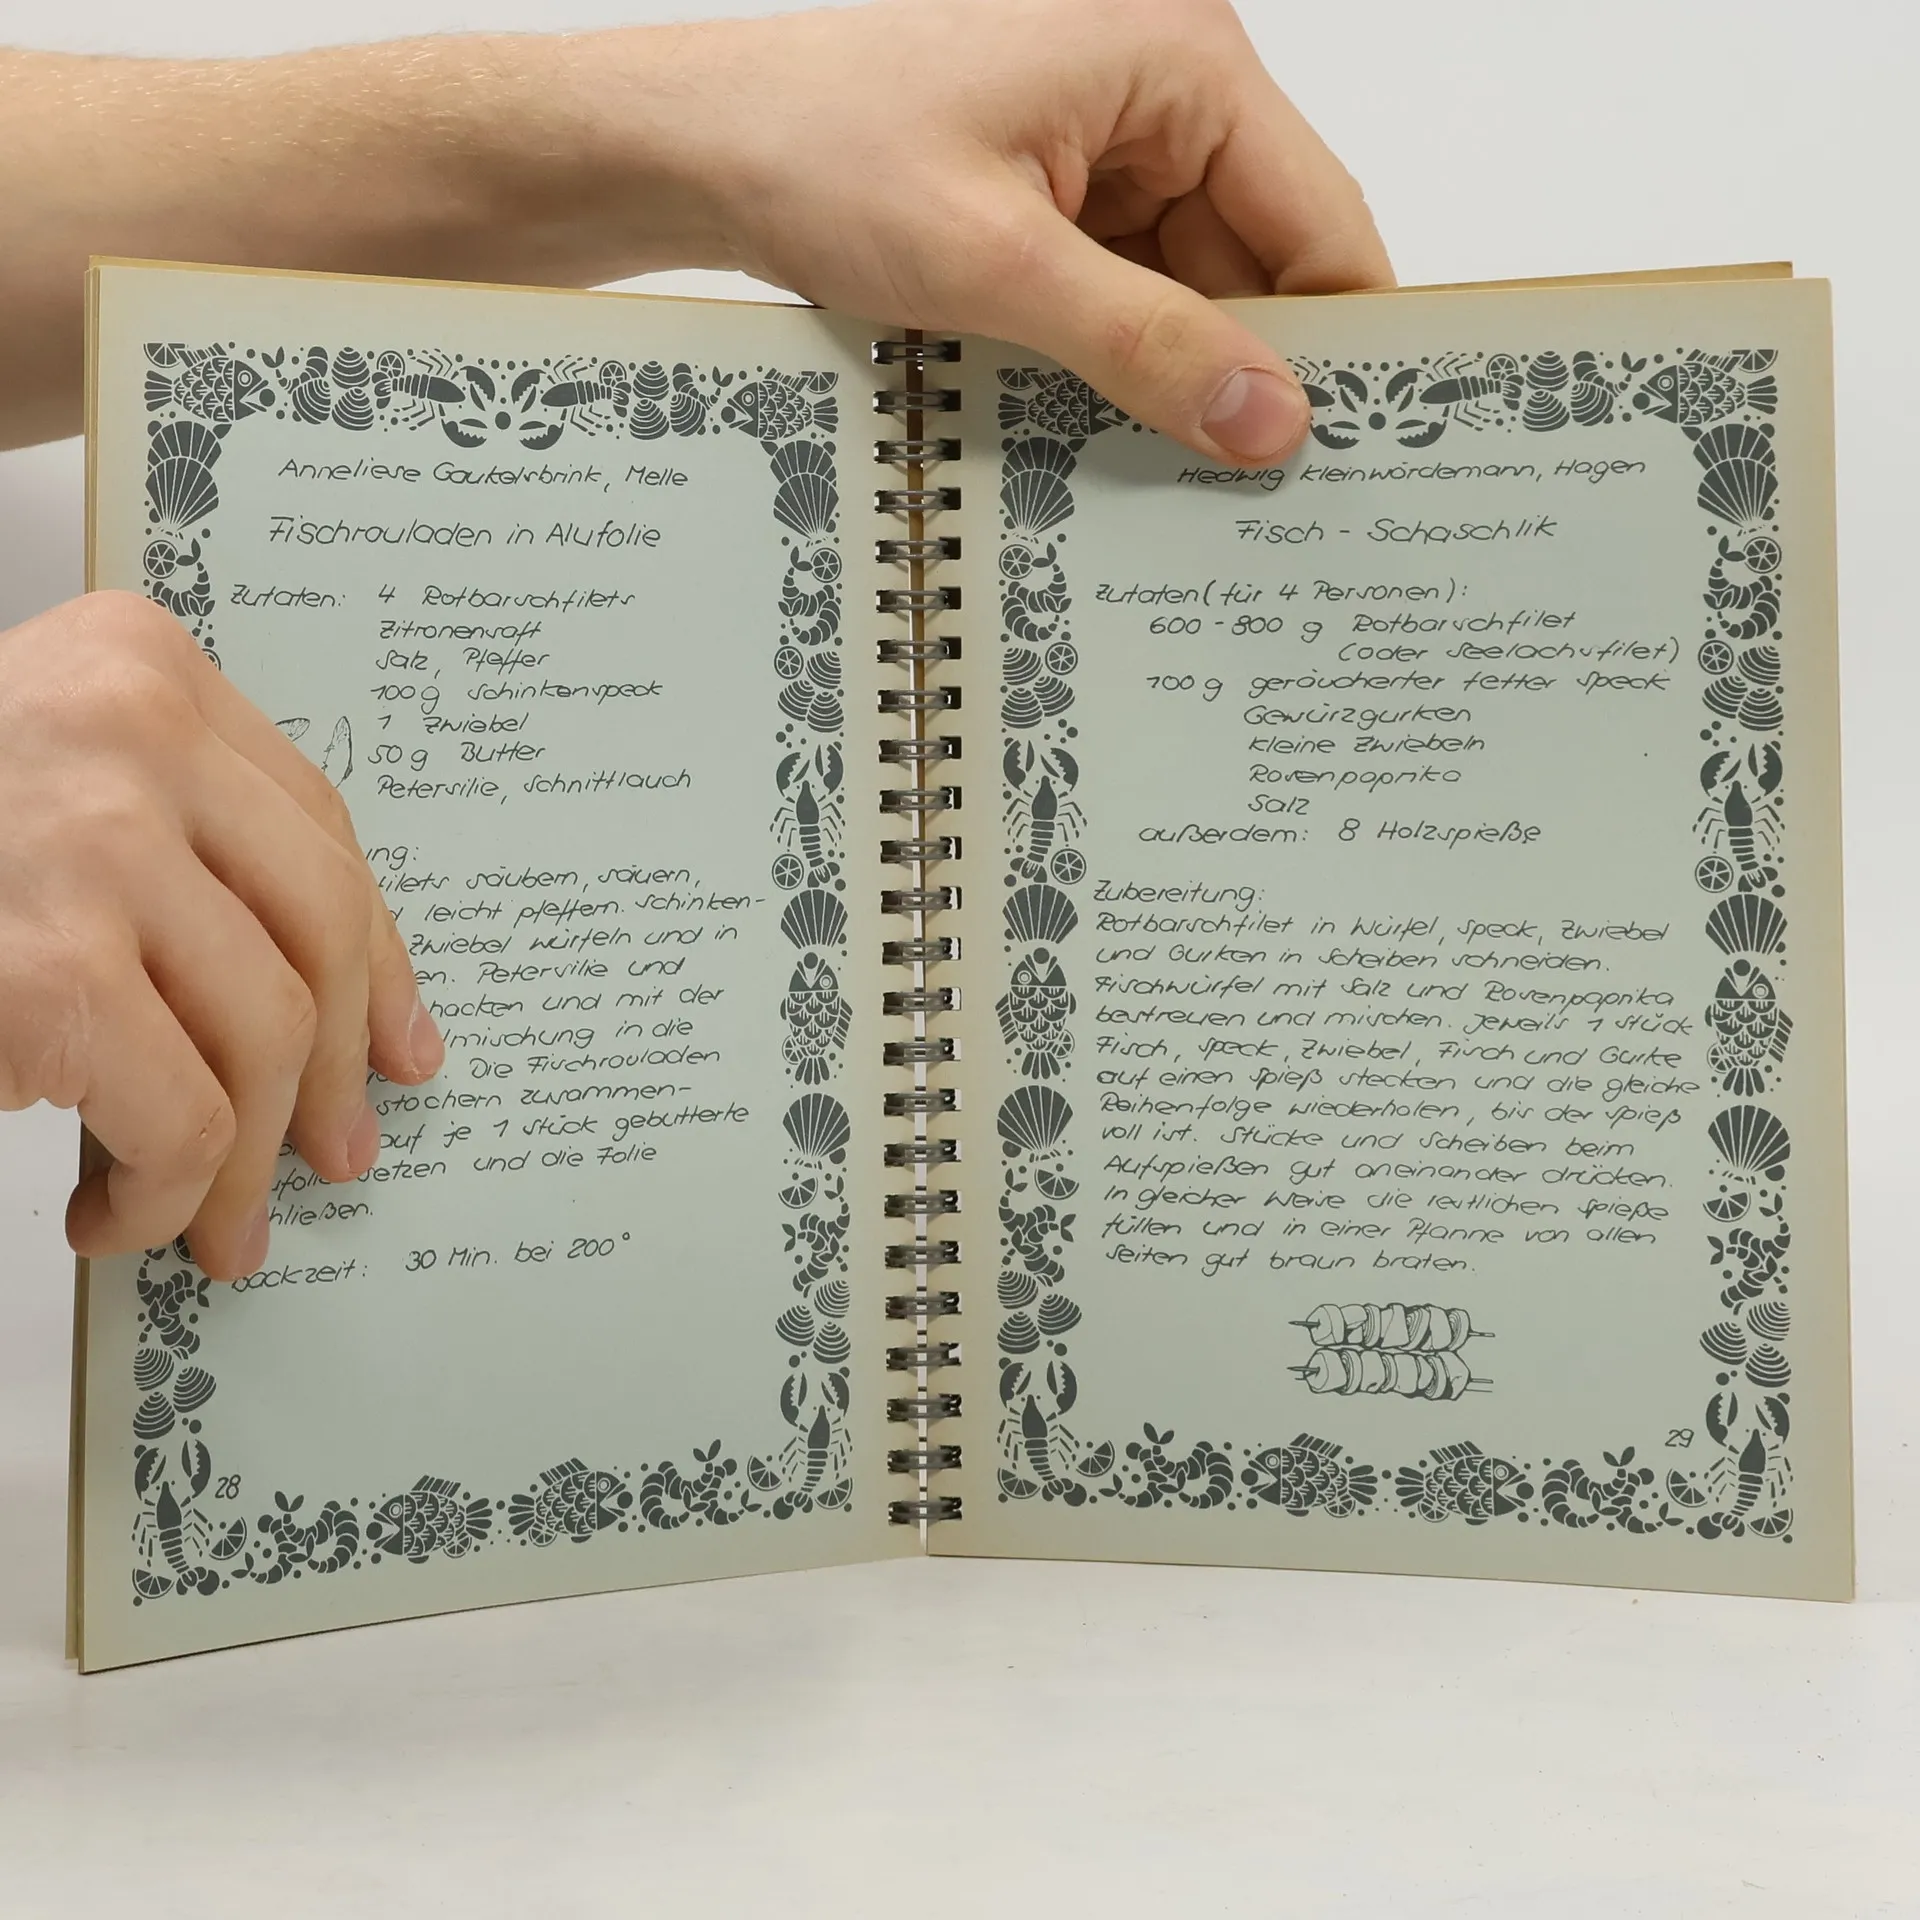 Anneliese Gaukelsbrink, Melle
Fischrouladen in Alufolie
Zutaten: 4 Rotbarschfilets
Zitronensaft
Salz, Pfeffer
100 g Schinkenspeck
1 Zwiebel
50 g Butter
Petersilie, Schnittlauch
ung:
filets säubern, säuern,
leicht pfeffern. Schinken-
Zwiebel würfeln und in
en. Petersilie und
hacken und mit der
lmischung in die
Die Fischrouladen
stochern zusammen-
auf je 1 Stück gebutterte
ufolie setzen und die Folie
hließen.
Backzeit: 30 Min. bei 200°
28
Hedwig Kleinwördemann, Hagen
Fisch - Schaschlik
Zutaten (für 4 Personen):
600 - 800 g Rotbarschfilet
(oder Seelachsfilet)
100 g geräucherter fetter Speck
Gewürzgurken
kleine Zwiebeln
Rosenpaprika
Salz
außerdem: 8 Holzspieße
Zubereitung:
Rotbarschfilet in Würfel, Speck, Zwiebel
und Gurken in Scheiben schneiden.
Fischwürfel mit Salz und Rosenpaprika
bestreuen und mischen. Jeweils 1 Stück
Fisch, Speck, Zwiebel, Fisch und Gurke
auf einen Spieß stecken und die gleiche
Reihenfolge wiederholen, bis der Spieß
voll ist. Stücke und Scheiben beim
Aufspießen gut aneinander drücken.
In gleicher Weise die restlichen Spieße
füllen und in einer Pfanne von allen
Seiten gut braun braten.
29